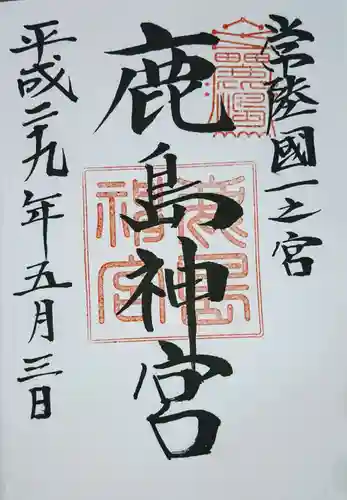 常陸國一之宮
鹿島神宮
平成二十九年五月三日
鹿島神宮